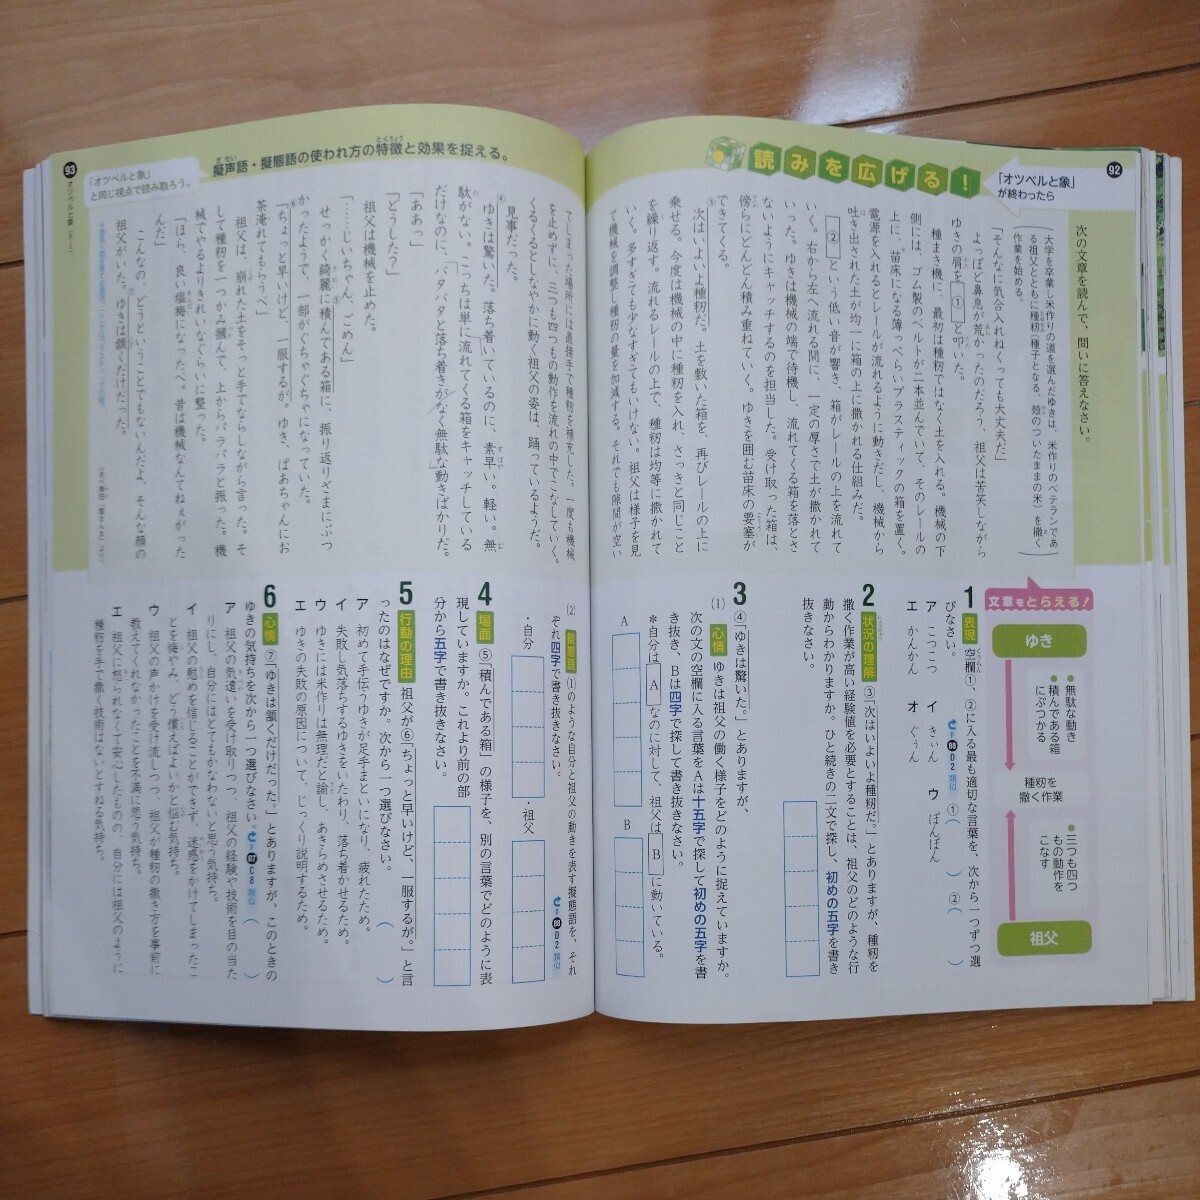 92
「オツベルと象」
が終わったら
読みを広げる！
次の文章を読んで、問いに答えなさい。
大学を卒業し米作りの道を選んだゆきは、米作りのベテランであ
る祖父とともに種籾（種子となる、殻のついたままの米）を撒く
作業を始める。
「そんなに気合入れねくっても大丈夫だ」
よっぽど鼻息が荒かったのだろう、祖父は苦笑しながら
ゆきの肩を①と叩いた。
種まき機に、最初は種籾ではなく土を入れる。機械の下
側には、ゴム製のベルトが二本並んでいて、そのレールの
上に、苗床になる薄っぺらいプラスティックの箱を置く。
電源を入れるとレールが流れるように動きだし、機械から
吐き出された土が均一に箱の上に撒かれる仕組みだ。
②という低い音が響き、箱がレールの上を流れて
いく。右から左へ流れる間に、一定の厚さで土が撒かれて
いった。ゆきは機械の端で待機し、流れてくる箱を落とさ
ないようにキャッチするのを担当した。受け取った箱は、
傍らにどんどん積み重ねていく。ゆきを囲む苗床の要塞が
できてくる。
③次はいよいよ種籾だ。土を敷いた箱を、再びレールの上に
乗せる。今度は機械の中に種籾を入れ、さっきと同じこと
を繰り返す。流れるレールの上で、種籾は均等に撒かれて
いく。多すぎても少なすぎてもいけない。祖父は様子を見
て機械を調整し種籾の量を加減する。それでも隙間が空い
文章をとらえる！
ゆき
無駄な動き
積んである箱
にぶつかる
種籾を
撒く作業
三つも四つ
もの動作を
こなす
祖父
1 表現 空欄①、②に入る最も適切な言葉を、次から一つずつ選
びなさい。
P88 D2 類似 ①（　） ②（　）
ア こつこつ イ きぃん ウ ぽんぽん
エ かんかん オ ぐぅん
2 状況の理解 ③「次はいよいよ種籾だ。」とありますが、種籾を
撒く作業が高い経験値を必要とすることは、祖父のどのような行
動からわかりますか。ひと続きの二文で探し、初めの五字を書き
抜きなさい。
3 ④「ゆきは驚いた。」とありますが、
(1) 心情 ゆきは祖父の働く様子をどのように捉えていますか。
次の文の空欄に入る言葉をAは十五字で探して初めの五字を書
き抜き、Bは四字で探して書き抜きなさい。
＊自分はAなのに対して、祖父はBに動いている。
A
B
93
オツベルと象
「オツベルと象」
と同じ視点で読み取ろう。
擬声語・擬態語の使われ方の特徴と効果を捉える。
てしまった場所には直接手で種籾を補充した。一度も機械
を止めずに、三つも四つもの動作を流れの中でこなしていく。
くるくるとしなやかに動く祖父の姿は、踊っているようだ。
見事だった。
④ゆきは驚いた。落ち着いているのに、素早い。軽い。無
駄がない。こっちは単に流れてくる箱をキャッチしている
だけなのに、バタバタと落ち着きがなく無駄な動きばかりだ。
「ああっ」
「どうした？」
祖父は機械を止めた。
「……じいちゃん、ごめん」
せっかく綺麗に積んである箱に、振り返りざまにぶつ
かったようで、一部がぐちゃぐちゃになっていた。
⑥「ちょっと早いけど、一服するが。ゆき、ばあちゃんにお
茶淹れてもらうべ」
祖父は、崩れた土をそっと手でならしながら言った。そ
して種籾を一つかみ摑んで、上からパラパラと振った。機
械でやるよりきれいなぐらいに整った。
「ほら、良い塩梅になったべ。昔は機械なんてねぇがった
んだ」
こんなの、どうということでもないんだよ、そんな顔の
祖父がいた。ゆきは頷くだけだった。
(2) 擬態語 (1)のような自分と祖父の動きを表す擬態語を、それ
ぞれ四字で書き抜きなさい。
P88 D2 類似
・自分
・祖父
4 場面 ⑤「積んである箱」の様子を、別の言葉でどのように表
現していますか。これより前の部
分から五字で書き抜きなさい。
5 行動の理由 祖父が⑥「ちょっと早いけど、一服するが。」と言
ったのはなぜですか。次から一つ選びなさい。（　）
ア 初めて手伝うゆきが足手まといになり、疲れたため。
イ 失敗し気落ちするゆきをいたわり、落ち着かせるため。
ウ ゆきには米作りは無理だと諭し、あきらめさせるため。
エ ゆきの失敗の原因について、じっくり説明するため。
6 心情 ⑦「ゆきは頷くだけだった。」とありますが、このときの
ゆきの気持ちを次から一つ選びなさい。P87 C8 類似（　）
ア 祖父の気遣いを受け取りつつ、祖父の経験や技術を目の当た
りにし、自分にはとてもかなわないと思う気持ち。
イ 祖父の慰めを信じることができず、迷惑をかけてしまったこ
とを悔やみ、どう償えばよいかと悩む気持ち。
ウ 祖父の声かけを受け流しつつ、祖父が種籾の撒き方を事前に
教えてくれなかったことを不満に思う気持ち。
エ 祖父に怒られなくて安心したものの、自分には祖父のように
種籾を手で撒く技術はないとすねる気持ち。